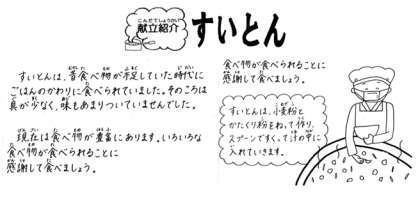 こんだてしょうかい
献立紹介
すいとん
すいとんは、昔食べ物が不足していた時代に
ごはんのかわりに食べられていました。そのころは
具が少なく、味もあまりついていませんでした。
現在は食べ物が豊富にあります。いろいろな
食べ物が食べられることに
感謝して食べましょう。
食べ物が食べられることに
感謝して食べましょう。
すいとんは、小麦粉と
かたくり粉をねって作り、
スプーンですくって汁の中に
入れていきます。